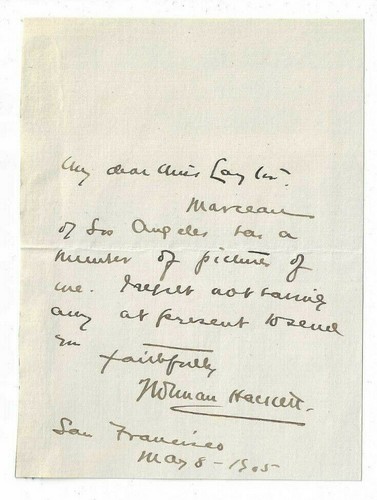 My dear Miss Taylor.
Marceau
of Los Angeles has a
number of pictures of
me. I regret not having
any at present to send
you
Faithfully
Norman Hackett.
San Francisco
May 8 - 1905